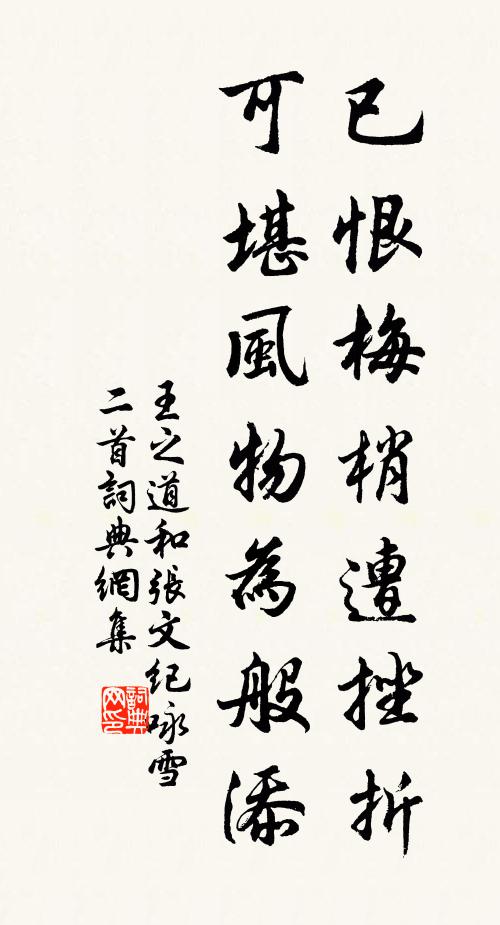 已恨梅梢遭挫折
可堪風物為般添
王之道和張文紀咏雪
二首詞典網集
詞典网印